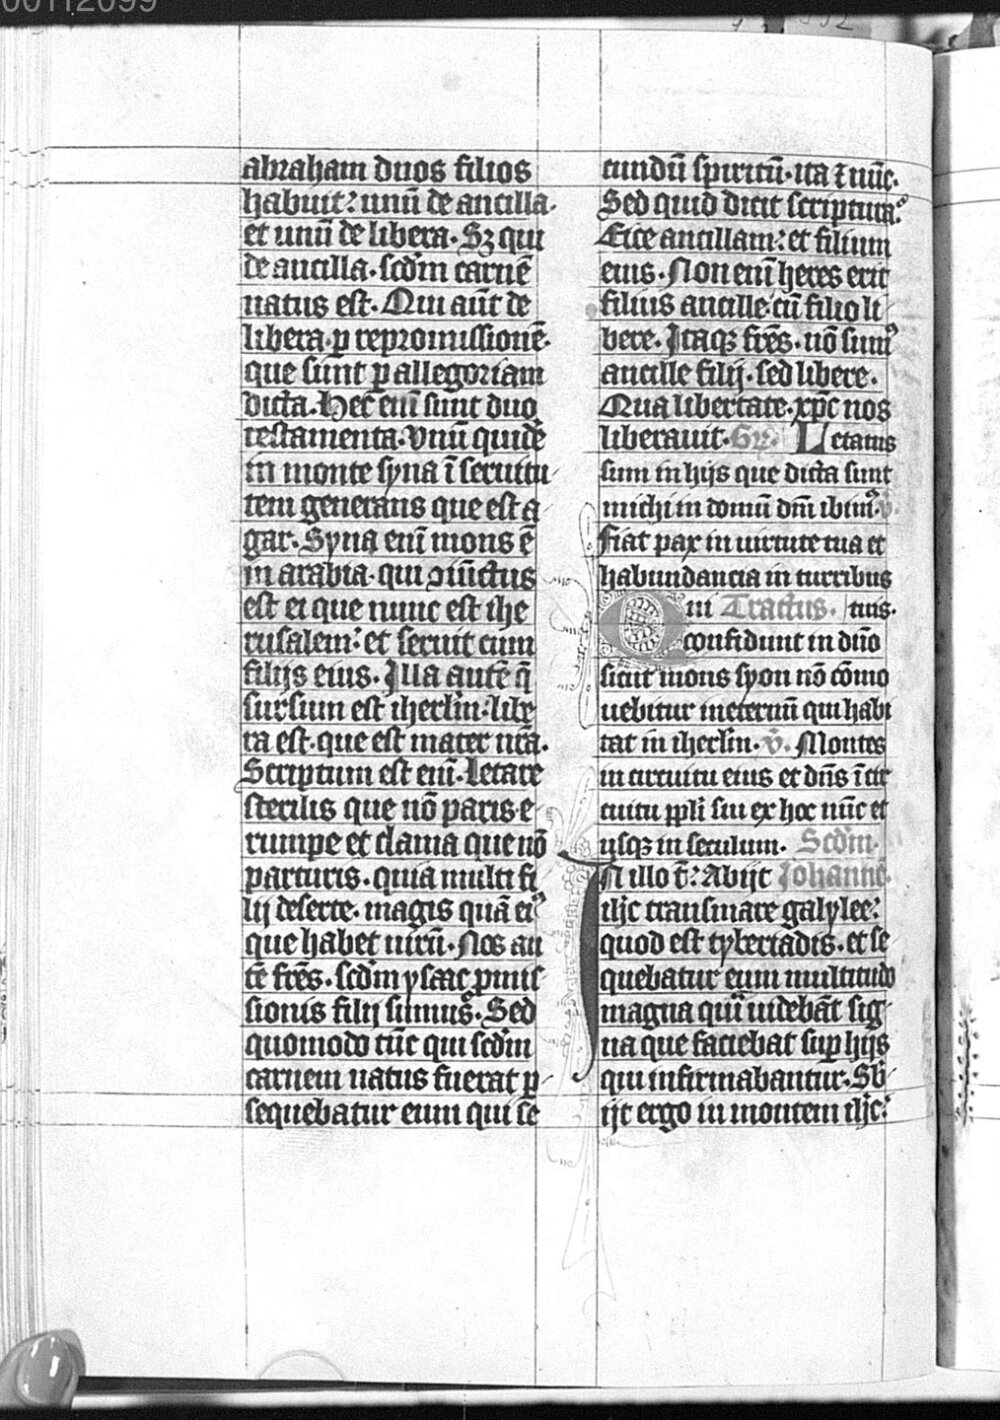 00112099
abraham duos filios
habuit: unū de ancilla·
et unū de libera· Sꝫ qui
de ancilla· scdm̄ carnē
natus est· Qui aūt de
libera· ꝑ repromissionē·
que sunt ꝑ allegoriam
dicta· Hec eni᷒ sunt duo
testamenta· Vnū quidē
in monte syna ī seruitu
tem generans que est a
gar· Syna eni᷒ mons ē
in arabia· qui ꝯiūctus
est ei que nunc est ihe
rusalem: et seruit cum
filijs eius· Illa autē q̄
sursum est iherlm̄· libe
ra est· que est mater nr̄a·
Scriptum est eni᷒· Letare
sterilis que nō paris· e
rumpe et clama que nō
parturis· quia multi fi
lij deserte· magis quā eiꝰ
que habet uirū· Nos au
tē fr̄es· scdm̄ ysaac ꝓmis
sionis filij sumꝰ· Sed
quomodo tūc qui scdm̄
carnem natus fuerat ꝑ
sequebatur eum qui se
cundū spiritū· ita ⁊ nūc·
Sed quid dicit scriptura?
Eice ancillam: et filium
eius· Non eni᷒ heres erit
filius ancille· cū filio li
bere· Itaqꝫ fr̄es· nō sumꝰ
ancille filij· sed libere·
Qua libertate· xp̄c nos
liberauit· Gr̄· Letatus
sum in hijs que dicta sunt
michi in domū dn̄i ibimꝰ· v̄·
Fiat pax in uirtute tua et
habundancia in turribus
Qui Tractus· tuis·
confidunt in dn̄o
sicut mons syon nō cōmo
uebitur ineternū qui habi
tat in iherlm̄· v̄· Montes
in circuitu eius et dn̄s ī cir
cuitu ppl̄i sui ex hoc nūc et
usqꝫ in seculum· Scdm̄·
In illo t̄: Abijt Johannē·
ih̄c transmare galylee:
quod est tyberiadis· et se
quebatur eum multitudo
magna quia uidebāt sig
na que faciebat suꝑ hijs
qui infirmabantur· Sb̄
ijt ergo in montem ih̄c: